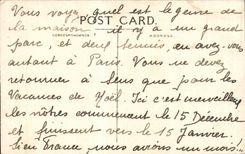 Vous voyez quel est le genre de
la maison il y a un grand
POST CARD.
CORRESPONDENCE ADDRESS
parc, et deux tennis, en avez-vous
autant à Paris. Vous ne devez
retourner à Sens que pour les
Vacances de Noël. Ici c'est merveilleux
les nôtres commencent le 15 Décembre
et finissent vers le 15 Janvier.
En France, nous avions un mois